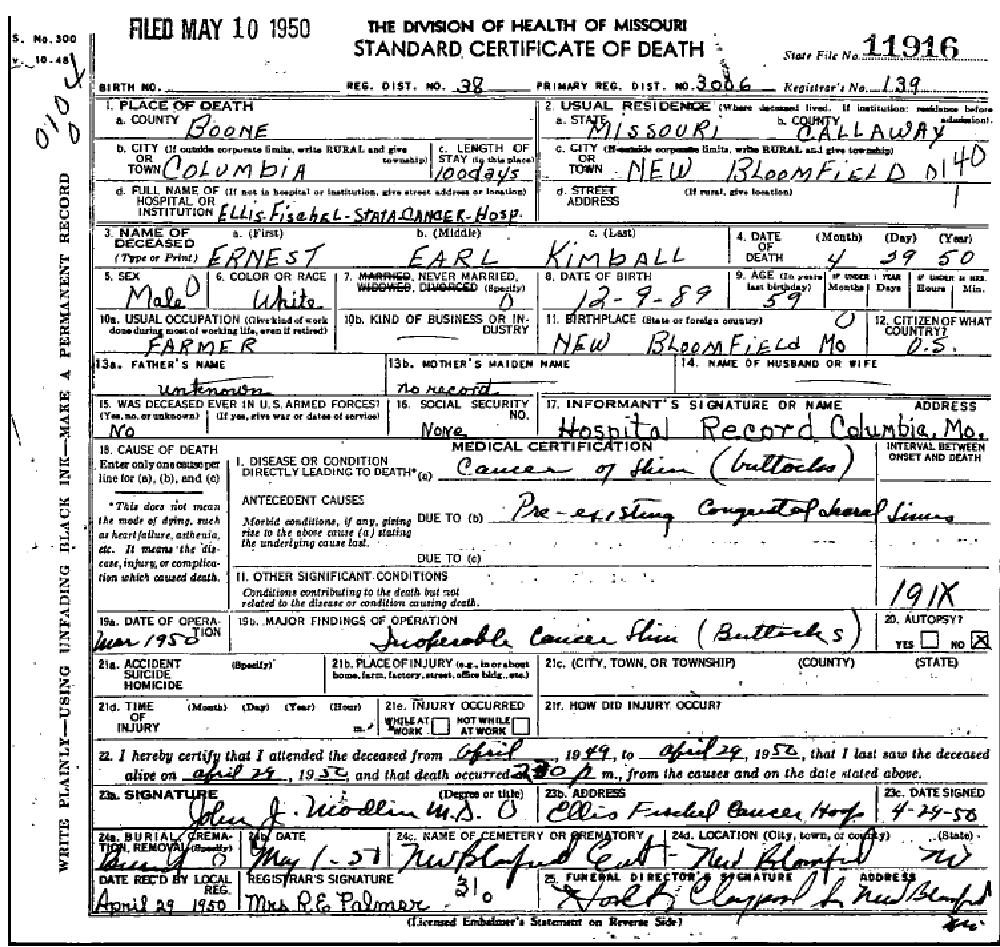 FILED MAY 10 1950
THE DIVISION OF HEALTH OF MISSOURI
STANDARD CERTIFICATE OF DEATH
S. No. 300
10-48
State File No. 11916
BIRTH NO. REG. DIST. NO. 38 PRIMARY REG. DIST. NO. 3006 Registrar's No. 139
1. PLACE OF DEATH
a. COUNTY BOONE
2. USUAL RESIDENCE (Where deceased lived. If institution: residence before admission).
a. STATE MISSOURI b. COUNTY CALLAWAY
b. CITY (If outside corporate limits, write RURAL and give township) OR TOWN COLUMBIA
c. LENGTH OF STAY (in this place) 100 days
c. CITY (If outside corporate limits, write RURAL and give township) OR TOWN NEW BLOOMFIELD 0140
d. FULL NAME OF HOSPITAL OR INSTITUTION (If not in hospital or institution, give street address or location) ELLIS FISCHEL-STATE CANCER-HOSP.
d. STREET ADDRESS (If rural, give location) 1
3. NAME OF DECEASED (Type or Print)
a. (First) b. (Middle) c. (Last)
ERNEST EARL KIMBALL
4. DATE OF DEATH (Month) (Day) (Year)
4 29 50
5. SEX Male 0
6. COLOR OR RACE White
7. MARRIED, NEVER MARRIED, WIDOWED, DIVORCED (Specify) 0
8. DATE OF BIRTH 12-9-89
9. AGE (In years last birthday) 59
IF UNDER 1 YEAR Months Days
IF UNDER 24 HRS. Hours Min.
10a. USUAL OCCUPATION (Give kind of work done during most of working life, even if retired) FARMER
10b. KIND OF BUSINESS OR INDUSTRY
11. BIRTHPLACE (State or foreign country) 0
NEW BLOOMFIELD MO
12. CITIZEN OF WHAT COUNTRY? U.S.
13a. FATHER'S NAME unknown
13b. MOTHER'S MAIDEN NAME no record
14. NAME OF HUSBAND OR WIFE
15. WAS DECEASED EVER IN U.S. ARMED FORCES? (Yes, no, or unknown) (If yes, give war or dates of service)
No
16. SOCIAL SECURITY NO. None
17. INFORMANT'S SIGNATURE OR NAME ADDRESS
Hospital Record Columbia, Mo.
18. CAUSE OF DEATH
Enter only one cause per line for (a), (b), and (c)
*This does not mean the mode of dying, such as heart failure, asthenia, etc. It means the disease, injury, or complication which caused death.
MEDICAL CERTIFICATION
INTERVAL BETWEEN ONSET AND DEATH
I. DISEASE OR CONDITION DIRECTLY LEADING TO DEATH* (a) Cancer of Skin (buttocks)
ANTECEDENT CAUSES
Morbid conditions, if any, giving rise to the above cause (a) stating the underlying cause last.
DUE TO (b) Pre-existing Congenital Sacral Sinus
DUE TO (c)
II. OTHER SIGNIFICANT CONDITIONS
Conditions contributing to the death but not related to the disease or condition causing death.
191X
19a. DATE OF OPERATION Mar 1950
19b. MAJOR FINDINGS OF OPERATION
Inoperable Cancer Skin (Buttocks)
20. AUTOPSY?
YES NO X
21a. ACCIDENT SUICIDE HOMICIDE (Specify)
21b. PLACE OF INJURY (e.g., in or about home, farm, factory, street, office bldg., etc.)
21c. (CITY, TOWN, OR TOWNSHIP) (COUNTY) (STATE)
21d. TIME OF INJURY (Month) (Day) (Year) (Hour) m.
21e. INJURY OCCURRED
WHILE AT WORK NOT WHILE AT WORK
21f. HOW DID INJURY OCCUR?
22. I hereby certify that I attended the deceased from April, 1949, to April 29, 1950, that I last saw the deceased
alive on April 29, 1950, and that death occurred at p m., from the causes and on the date stated above.
23a. SIGNATURE (Degree or title)
John J. Modlin M.D. 0
23b. ADDRESS
Ellis Fischel Cancer Hosp
23c. DATE SIGNED
4-29-50
24a. BURIAL, CREMATION, REMOVAL (Specify)
24b. DATE
May 1-50
24c. NAME OF CEMETERY OR CREMATORY
New Bloomfield Cem
24d. LOCATION (City, town, or county) (State)
New Bloomfield Mo
DATE REC'D BY LOCAL REG.
April 29 1950
REGISTRAR'S SIGNATURE
Mrs R.E. Palmer 310
25. FUNERAL DIRECTOR'S SIGNATURE ADDRESS
Claypool New Bloomfield Mo
(Licensed Embalmer's Statement on Reverse Side)
WRITE PLAINLY—USING UNFADING BLACK INK—MAKE A PERMANENT RECORD